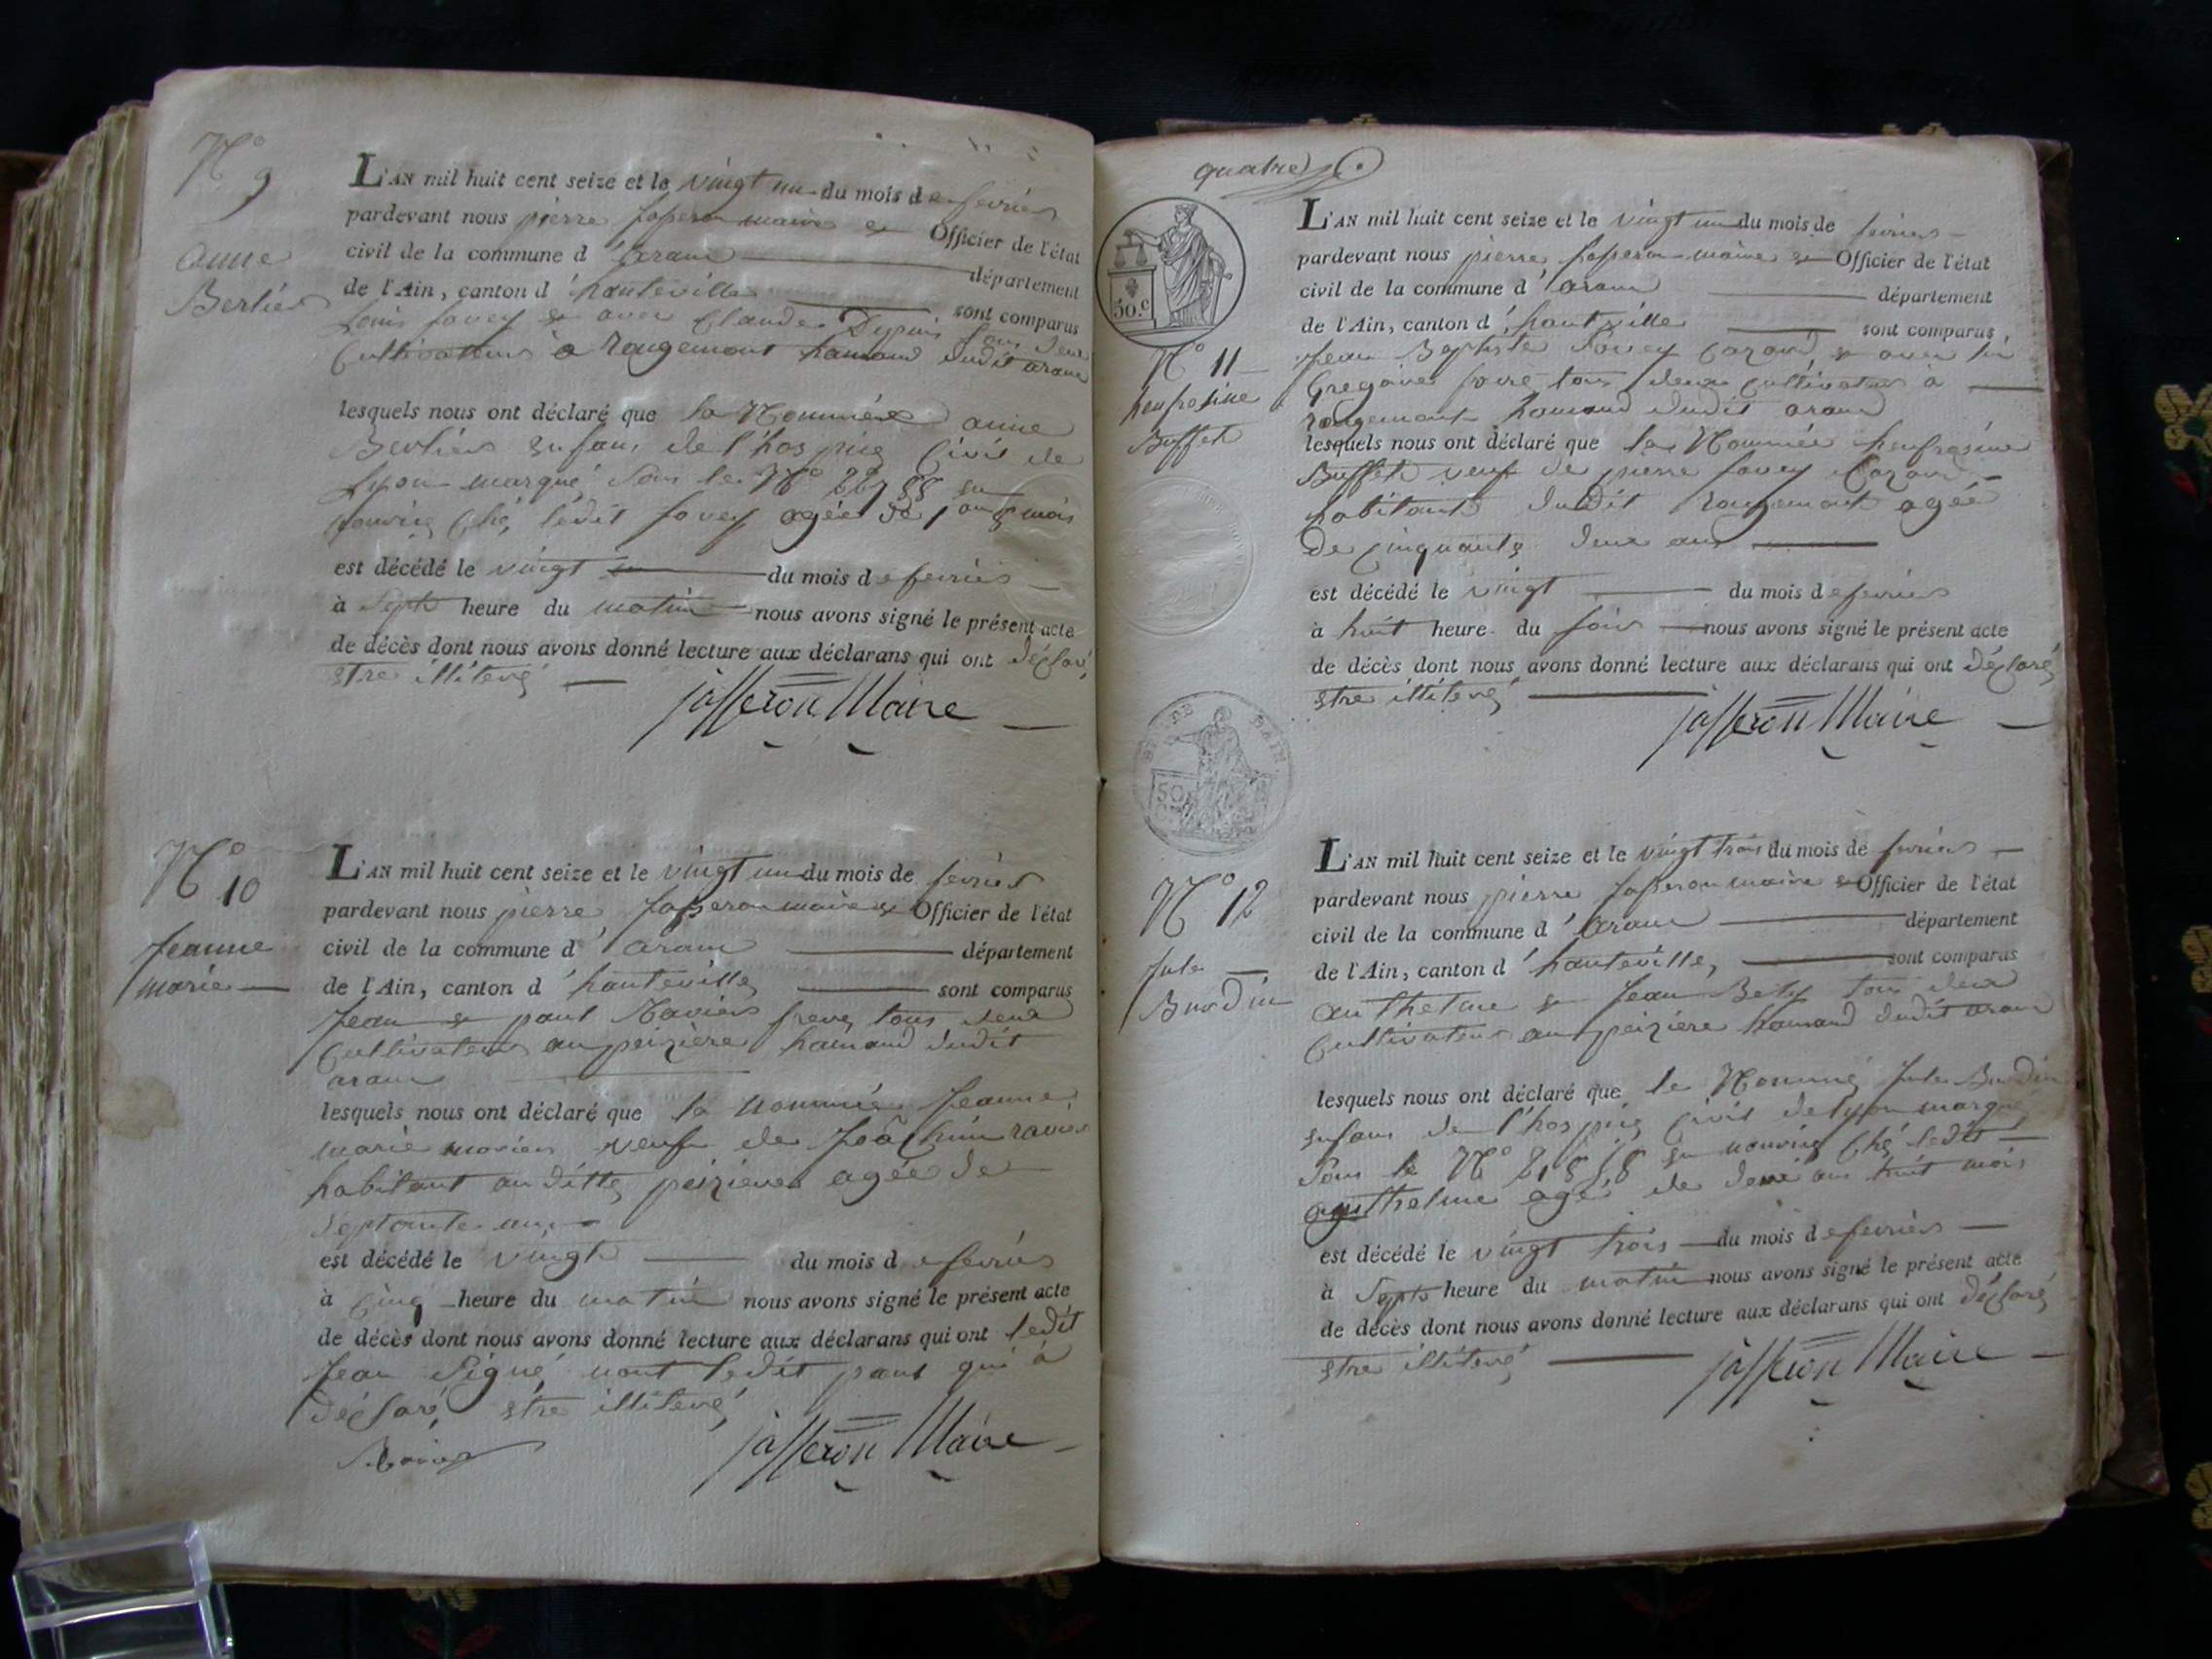 N° 9
anne
Berlier
L'AN mil huit cent seize et le vingt un du mois de fevrier
pardevant nous pierre Jasseron maire & Officier de l'état
civil de la commune d'aranc département
de l'Ain, canton d'hauteville sont comparus
Louis savey & avec Claude Dupuis tous deux
Cultivateurs a rougemont hamaud dudit aranc
lesquels nous ont déclaré que la Nommée anne
Berlier enfans de l'hospice Civil de
lyon marqué sous le N° en
nourrice ché ledit savey agée de mois
est décédé le vingt du mois de fevrier
à septe heure du matin nous avons signé le présent acte
de décès dont nous avons donné lecture aux déclarans qui ont déclaré
etre illiteré
jasseron Maire
N° 10
Jeanne
marie
L'AN mil huit cent seize et le vingt un du mois de fevrier
pardevant nous pierre Jasseron maire & Officier de l'état
civil de la commune d'aranc département
de l'Ain, canton d'hauteville sont comparus
Jean & paul Ravier frere tous deux
Cultivateurs au peizière hamaud dudit
aranc
lesquels nous ont déclaré que la nommée Jeanne
marie veufe de Joachim ravier
habitant au dittes peizieres agée de
septante ans
est décédé le vingt du mois de fevrier
à cinq heure du matin nous avons signé le présent acte
de décès dont nous avons donné lecture aux déclarans qui ont ledit
Jean signé nont ledit paul qui à
déclaré etre illiteré
jasseron Maire
quatre
50.c
N° 11
heufrosine
Buffet
L'AN mil huit cent seize et le vingt un du mois de fevrier
pardevant nous pierre Jasseron maire & Officier de l'état
civil de la commune d'aranc département
de l'Ain, canton d'hauteville sont comparus
Jean Baptiste savey & avec lui
Gregoire tous deux cultivateurs à
rougemont hamaud dudit aranc
lesquels nous ont déclaré que la Nommée heufrosine
Buffet veufe de pierre savey
habitante dudit rougemont agée
de cinquante deux ans
est décédé le vingt du mois de fevrier
à huit heure du soir nous avons signé le présent acte
de décès dont nous avons donné lecture aux déclarans qui ont déclaré
etre illiteré
jasseron Maire
DE L'AIN
50
N° 12
Jule
Burdin
L'AN mil huit cent seize et le vingt trois du mois de fevrier
pardevant nous pierre Jasseron maire & Officier de l'état
civil de la commune d'aranc département
de l'Ain, canton d'hauteville, sont comparus
anthelme & Jean Bely tous deux
Cultivateurs au peizière hamaud dudit aranc
lesquels nous ont déclaré que le Nommé Jule Burdin
enfans de l'hospice Civil de lyon marqué
sous le N° en nourrice ché ledit
anthelme agé de deux ans huit mois
est décédé le vingt trois du mois de fevrier
à septe heure du matin nous avons signé le présent acte
de décès dont nous avons donné lecture aux déclarans qui ont déclaré
etre illiteré
jasseron Maire